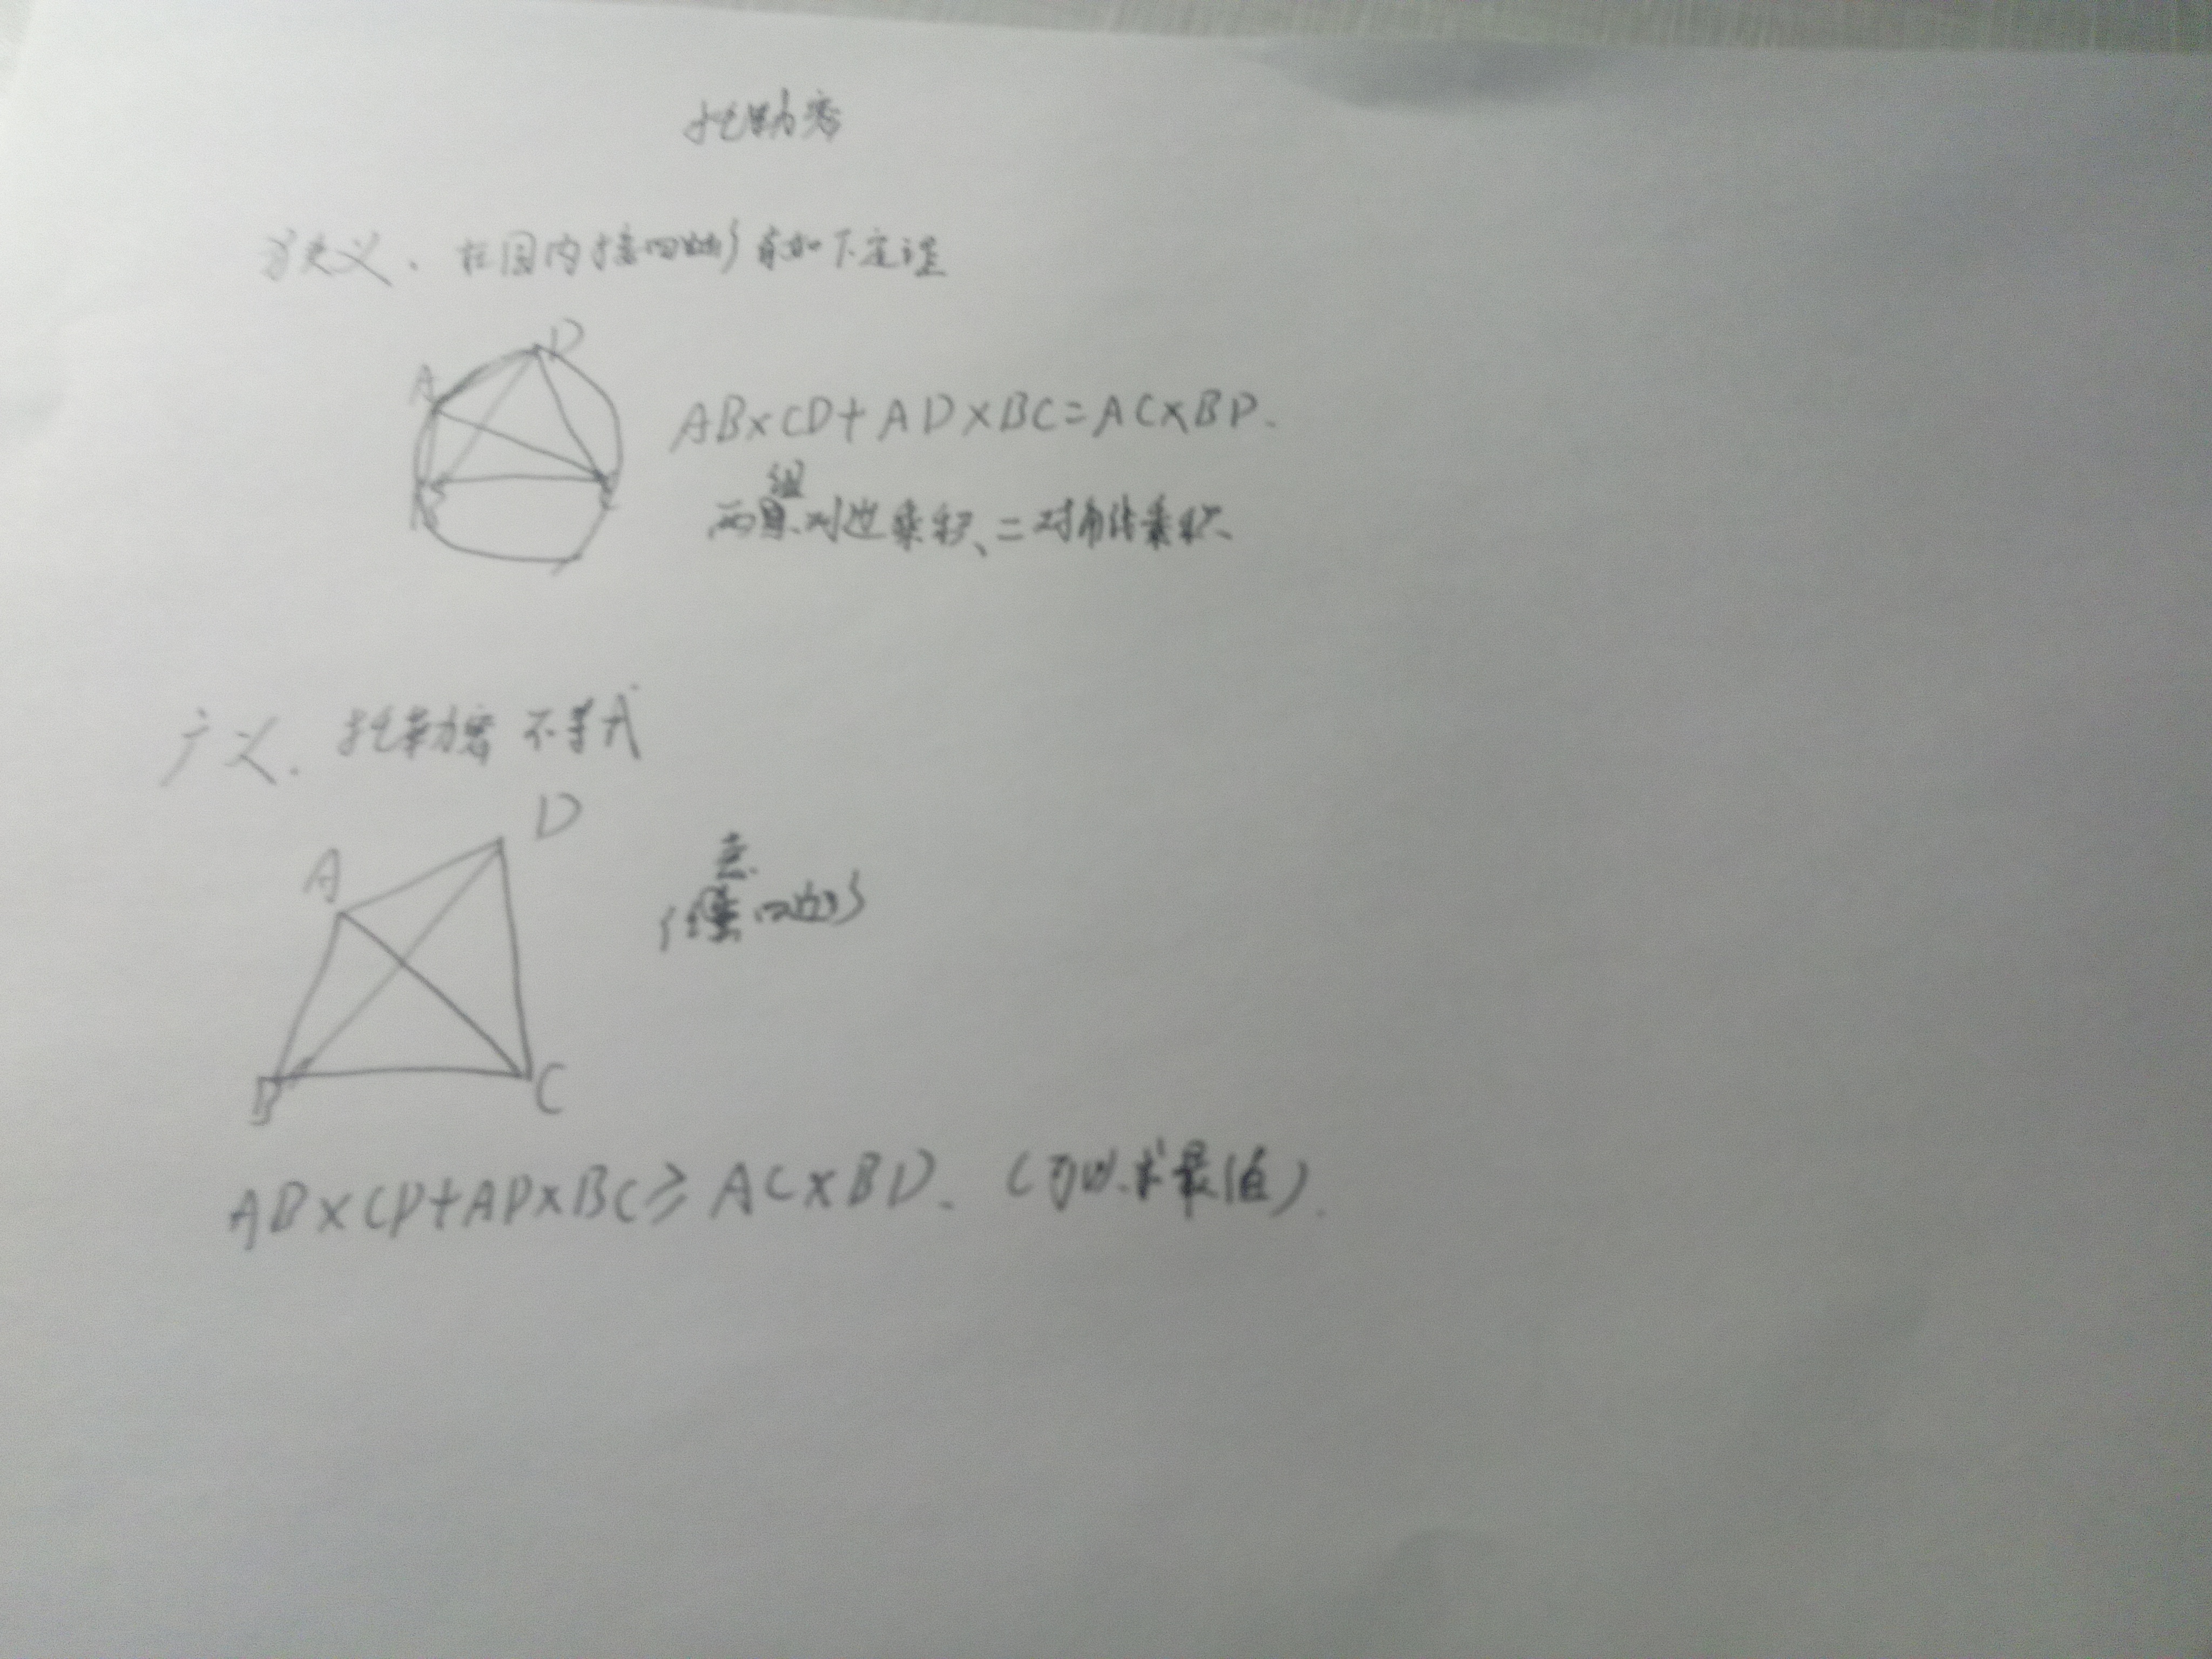 托勒密
狭义、在园内接四边形有如下定理
A
D
B
C
AB×CD+AD×BC=AC×BD.
组
两对边乘积、=对角线乘积、
广义.托勒密不等式
D
A
意.
任四边形
B
C
AB×CD+AD×BC≥AC×BD.(可以求最值).